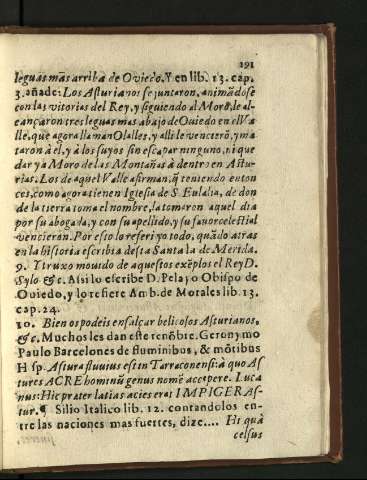 191
leguas mas arriba de Oviedo. Y en lib. 13. cap.
3. añade: Los Asturianos se juntaron, animãdose
con las vitorias del Rey, y siguiendo al Moro, le al-
cançaron tres leguas mas abajo de Ouiedo en el Va
lle, que agora llaman Olalles, y alli le vencierõ, y ma
taron à el, y à los suyos sin escapar ninguno, ni que
dar yà Moro de las Montañas à dentro en Astu-
rias. Los de aquel Valle afirman, q̃ teniendo enton
ces, como agora tienen Iglesia de S. Eulalia, de don
de la tierra toma el nombre, la tomaron aquel dia
por su abogada, y con su apellido, y su favor celestial
vencieron. Por esto lo referi yo todo, quãdo atras
en la historia escribia desta Santa la de Merida.
9. Y truxo mouido de aquestos exẽplos el Rey D.
Sylo &c. Assi lo escribe D. Pelayo Obispo de
Ouiedo, y lo refiere Amb. de Morales lib. 13.
cap. 24.
10. Bien os podeis ensalçar belicosos Asturianos,
&c. Muchos les dan este renõbre. Geronymo
Paulo Barcelones de fluminibus, & mõtibus
Hisp. Astura fluuius est in Tarraconensi: à quo As
tures ACRE hominũ genus nomẽ accepere. Luca
nus: Hic præter latias acies erat IMPIGER As-
tur. ¶ Silio Italico lib. 12. contandolos en-
tre las naciones mas fuertes, dize.... Hi quà
celsus